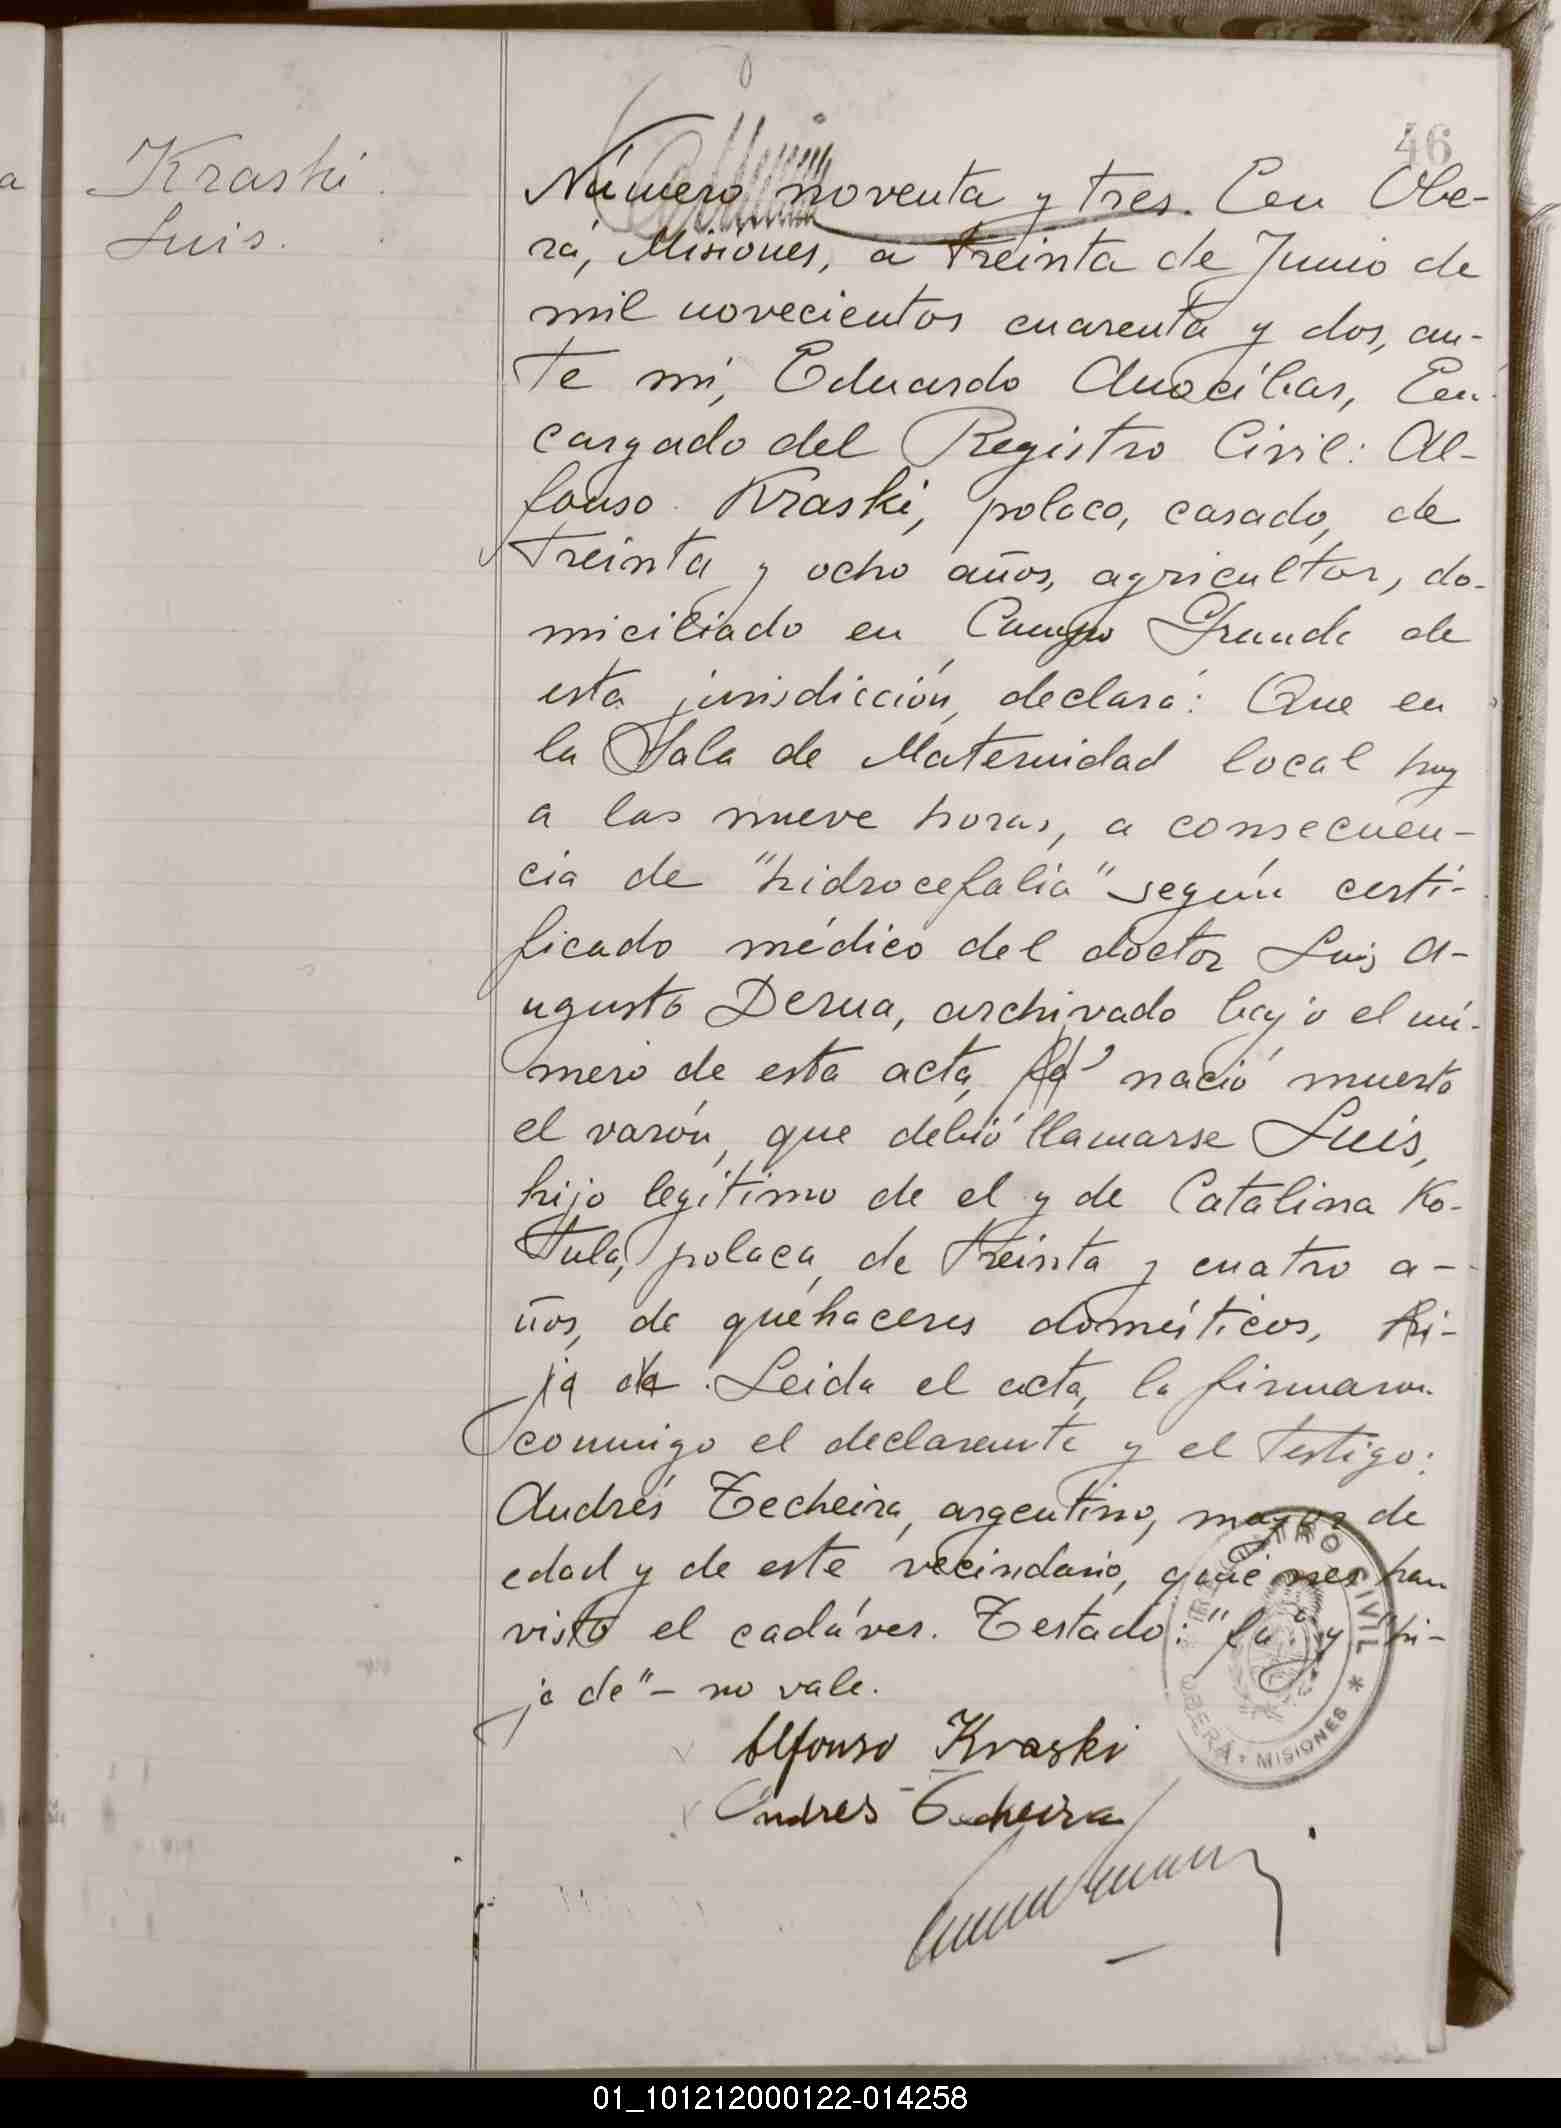 46
Kraski
Luis.
Número noventa y tres. En Obe-
rá, Misiones, a treinta de Junio de
mil novecientos cuarenta y dos, an-
te mí, Eduardo Anocíbar, En-
cargado del Registro Civil: Al-
fonso Kraski, polaco, casado, de
treinta y ocho años, agricultor, do-
miciliado en Campo Grande de
esta jurisdicción, declaró: Que en
la Sala de Maternidad local hoy
a las nueve horas, a consecuen-
cia de "hidrocefalia" según certi-
ficado médico del doctor Luis A-
ugusto Derna, archivado bajo el nú-
mero de esta acta, fa nació muerto
el varón, que debió llamarse Luis,
hijo legítimo de el y de Catalina Ko-
tula, polaca, de treinta y cuatro a-
ños, de quehaceres domésticos, hi-
ja de. Leida el acta, la firmaron
conmigo el declarante y el testigo:
Andrés Techeira, argentino, mayor de
edad y de este vecindario, quienes han
visto el cadáver. Testado: "fa" y "hi-
ja de" - no vale.
Alfonso Kraski
Andres Techeira
REGISTRO CIVIL
OBERÁ * MISIONES *
01_101212000122-014258